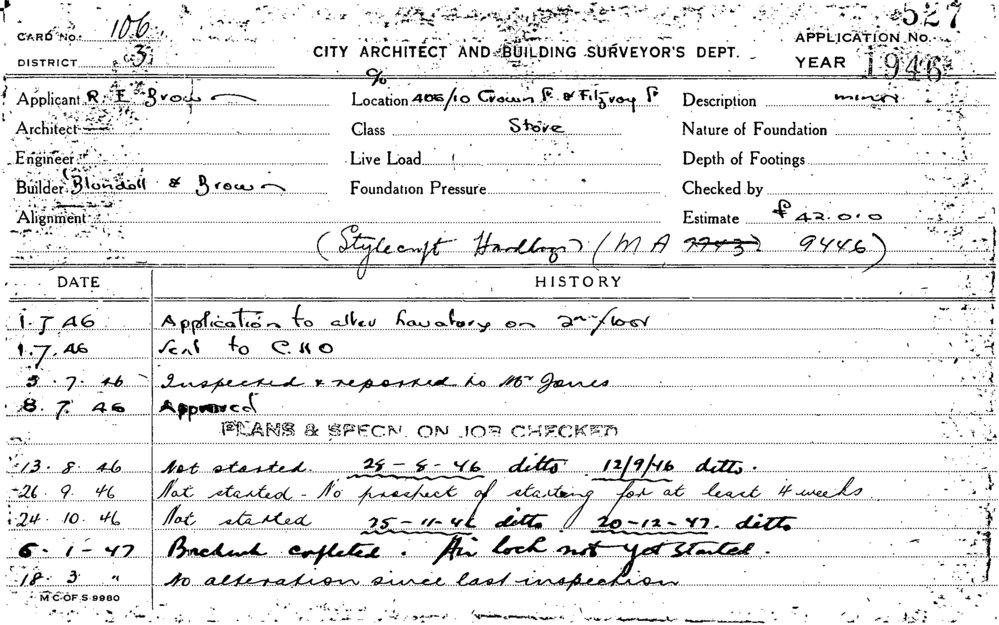 527
CARD No. 106
APPLICATION No.
DISTRICT 3
CITY ARCHITECT AND BUILDING SURVEYOR'S DEPT.
YEAR 1946
Applicant R. E. Brown
Location c/o 406/10 Crown St & Fitzroy St
Description minor
Architect
Class Store
Nature of Foundation
Engineer
Live Load
Depth of Footings
Builder Blundall & Brown
Foundation Pressure
Checked by
Alignment
Estimate £42.0.0
(Stylecraft Handbags) (MA 7743) 9446)
DATE HISTORY
1.7.46 Application to alter Lavatory on 2nd floor
1.7.46 Sent to C.H.O
3.7.46 Inspected & reported to Mr Jones
8.7.46 Approved
PLANS & SPECN. ON JOB CHECKED
13.8.46 Not started. 28-8-46 ditto 12/9/46 ditto.
26.9.46 Not started - No prospect of starting for at least 4 weeks
24.10.46 Not started 25-11-46 ditto 20-12-47. ditto
6-1-47 Brickwk completed. Air lock not yet started.
18.3 " No alteration since last inspection
M C OF S 9960